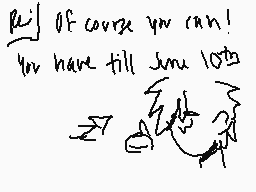 Re: Of course you can!
You have till June 10th